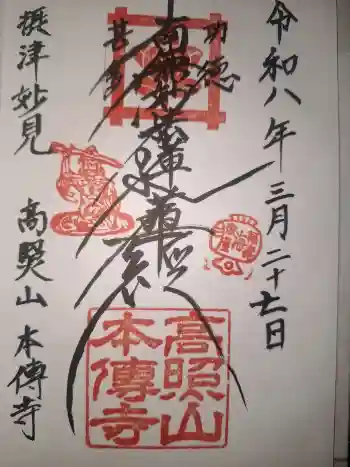 令和八年三月二十七日
功徳
南無妙法蓮華経
甚多
摂津妙見
高照山 本傳寺
高照山
本傳寺